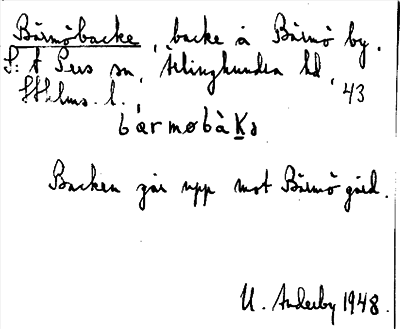 Bärmöbacke, backe å Bärmö by.
S:t Pers sn, Ærlinghundra hd,
Sthlms. l., 43
bærmøbàKə
Backen går upp mot Bärmö gård.
U. Anderby 1948.